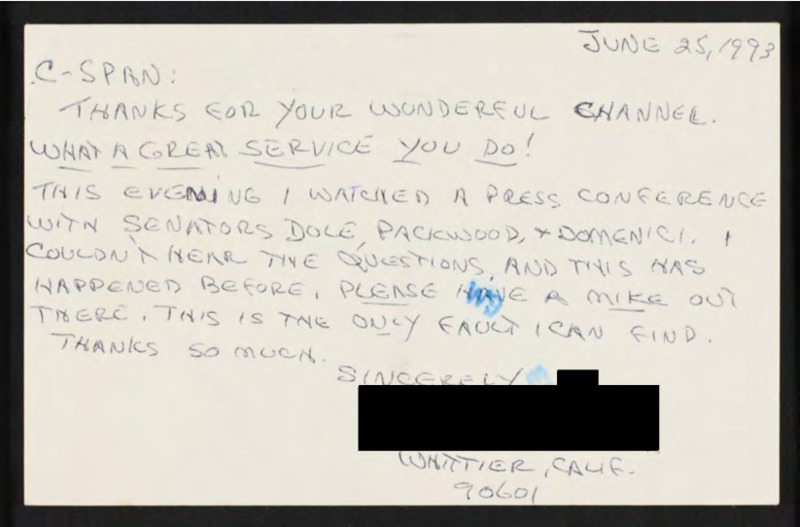 JUNE 25, 1993
C-SPAN:
THANKS FOR YOUR WONDERFUL CHANNEL.
WHAT A GREAT SERVICE YOU DO!
THIS EVENING I WATCHED A PRESS CONFERENCE
WITH SENATORS DOLE, PACKWOOD, + DOMENICI. I
COULDN'T HEAR THE QUESTIONS, AND THIS HAS
HAPPENED BEFORE. PLEASE HAVE A MIKE OUT
THERE. THIS IS THE ONLY FAULT I CAN FIND.
THANKS SO MUCH.
SINCERELY
WHITTIER, CALIF.
90601